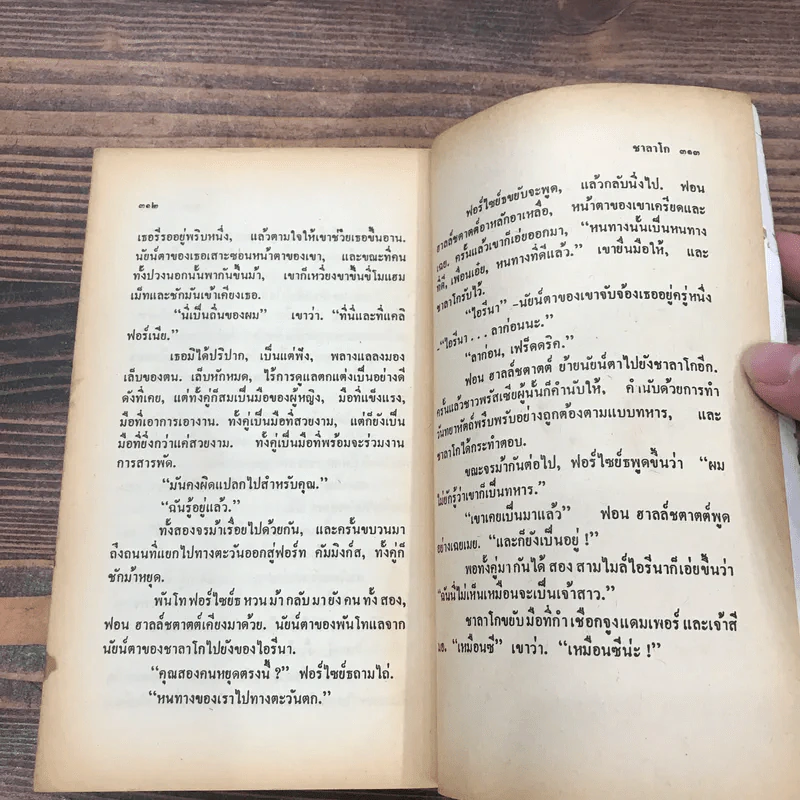 ๓๑๒
เธอรีรออยู่พริบหนึ่ง, แล้วตามใจให้เขาช่วยเธอขึ้นอาน.
นัยน์ตาของเธอเสาะซ่อนหน้าตาของเขา, และขณะที่คน
ทั้งปวงนอกนั้นพากันขึ้นม้า, เขาก็เหวี่ยงขาขึ้นขี่โมแฮม
เม็ทและชักมันเข้าเคียงเธอ.
“นี่เป็นถิ่นของผม” เขาว่า. “ที่นี่และที่แคลิ
ฟอร์เนีย.”
เธอมิได้ปริปาก, เป็นแต่ฟัง, พลางแลลงมอง
เล็บของตน. เล็บหักหมด, ไร้การดูแลตกแต่งเป็นอย่างดี
ดังที่เคย, แต่ทั้งคู่ก็สมเป็นมือของผู้หญิง, มือที่แข็งแรง,
มือที่เอาการเอางาน. ทั้งคู่เป็นมือที่สวยงาม, แต่ก็ยังเป็น
มือที่ยิ่งกว่าแค่สวยงาม. ทั้งคู่เป็นมือที่พร้อมจะร่วมงาน
การสารพัด.
“มันคงผิดแปลกไปสำหรับคุณ.”
“ฉันรู้อยู่แล้ว.”
ทั้งสองจรม้าเรื่อยไปด้วยกัน, และครั้นขบวนมา
ถึงถนนที่แยกไปทางตะวันออกสู่ฟอร์ท คัมมิงก์ส, ทั้งคู่ก็
ชักม้าหยุด.
พันโทฟอร์ไซย์ธ หวน ม้า กลับ มา ยัง คน ทั้ง สอง,
ฟอน ฮาลล์ชตาตต์เคียงมาด้วย. นัยน์ตาของพันโทแลจาก
นัยน์ตาของชาลาโกไปยังของไอรีนา.
“คุณสองคนหยุดตรงนี้ ?” ฟอร์ไซย์ธถามไถ่.
“หนทางของเราไปทางตะวันตก.”
ชาลาโก ๓๑๓
ฟอร์ไซย์ธขยับจะพูด, แล้วกลับนิ่งไป. ฟอน
ฮาลล์ชตาตต์อาหลักอาเหลื่อ, หน้าตาของเขาเครียดและ
เฉย. ครั้นแล้วเขาก็เอ่ยออกมา, “หนทางนั้นเป็นหนทาง
ที่ดี, เพื่อนเอ๋ย, หนทางที่ดีแล้ว.” เขายื่นมือให้, และ
ชาลาโกรับไว้.
“ไอรีนา” -นัยน์ตาของเขาจับจ้องเธออยู่ครู่หนึ่ง
-“ไอรีนา . . . ลาก่อนนะ.”
“ลาก่อน, เฟร็ดดริค.”
ฟอน ฮาลล์ชตาตต์ ย้ายนัยน์ตาไปยังชาลาโกอีก.
ครั้นแล้วชาวพรัสเซียผู้นั้นก็คำนับให้, คำนับด้วยการทำ
วันทยาหัตถ์พรึบพรับอย่างถูกต้องตามแบบทหาร, และ
ชาลาโกได้กระทำตอบ.
ขณะจรม้ากันต่อไป, ฟอร์ไซย์ธพูดขึ้นว่า “ผม
ไม่ยักรู้ว่าเขาก็เป็นทหาร.”
“เขาเคยเป็นมาแล้ว” ฟอน ฮาลล์ชตาตต์พูด
อย่างเฉยเมย. “และก็ยังเป็นอยู่ !”
พอทั้งคู่มา กันได้ สอง สามไมล์ไอรีนาก็เอ่ยขึ้นว่า
“ฉันนี่ไม่เห็นเหมือนจะเป็นเจ้าสาว.”
ชาลาโกขยับ มือที่กำ เชือกจูงแดมเพอร์ และเจ้าสี
“เหมือนซี” เขาว่า. “เหมือนซีน่ะ !”